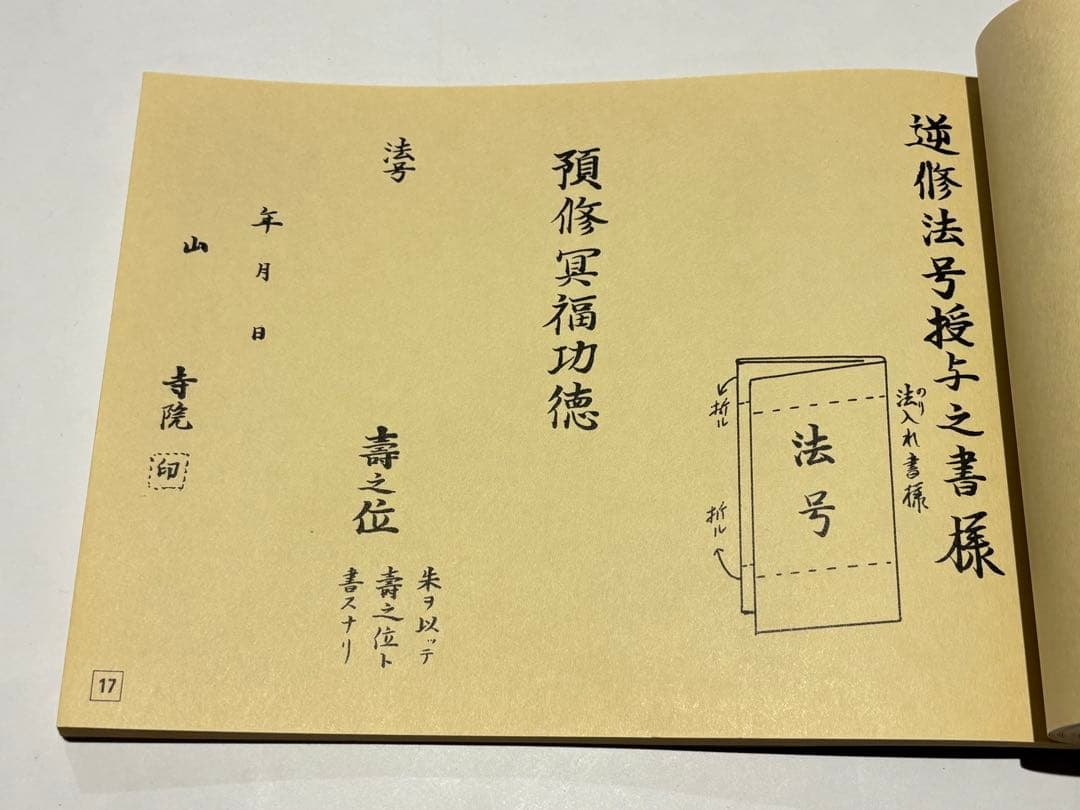 逆修法号授与之書様
法入れ書様
のり
法号
折ル
折ル
預修冥福功徳
法号
壽之位
朱ヲ以ッテ
壽之位ト
書スナリ
年月日
山寺院
印
17